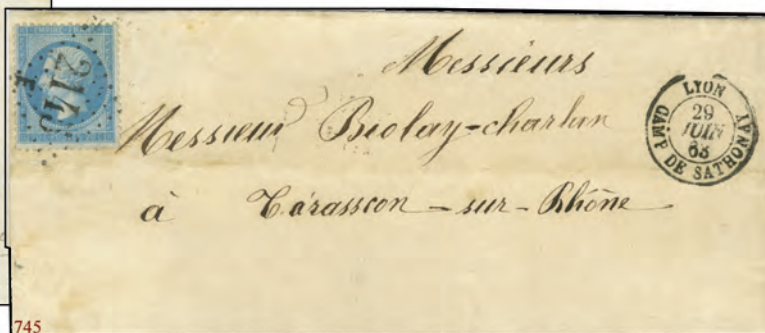 EMPIRE FRANC
2145
Messieurs
Messieur Biolay-charlun
à Tarasscon-sur-Rhône
LYON
29
JUIN
63
CAMP DE SATHONAY
745